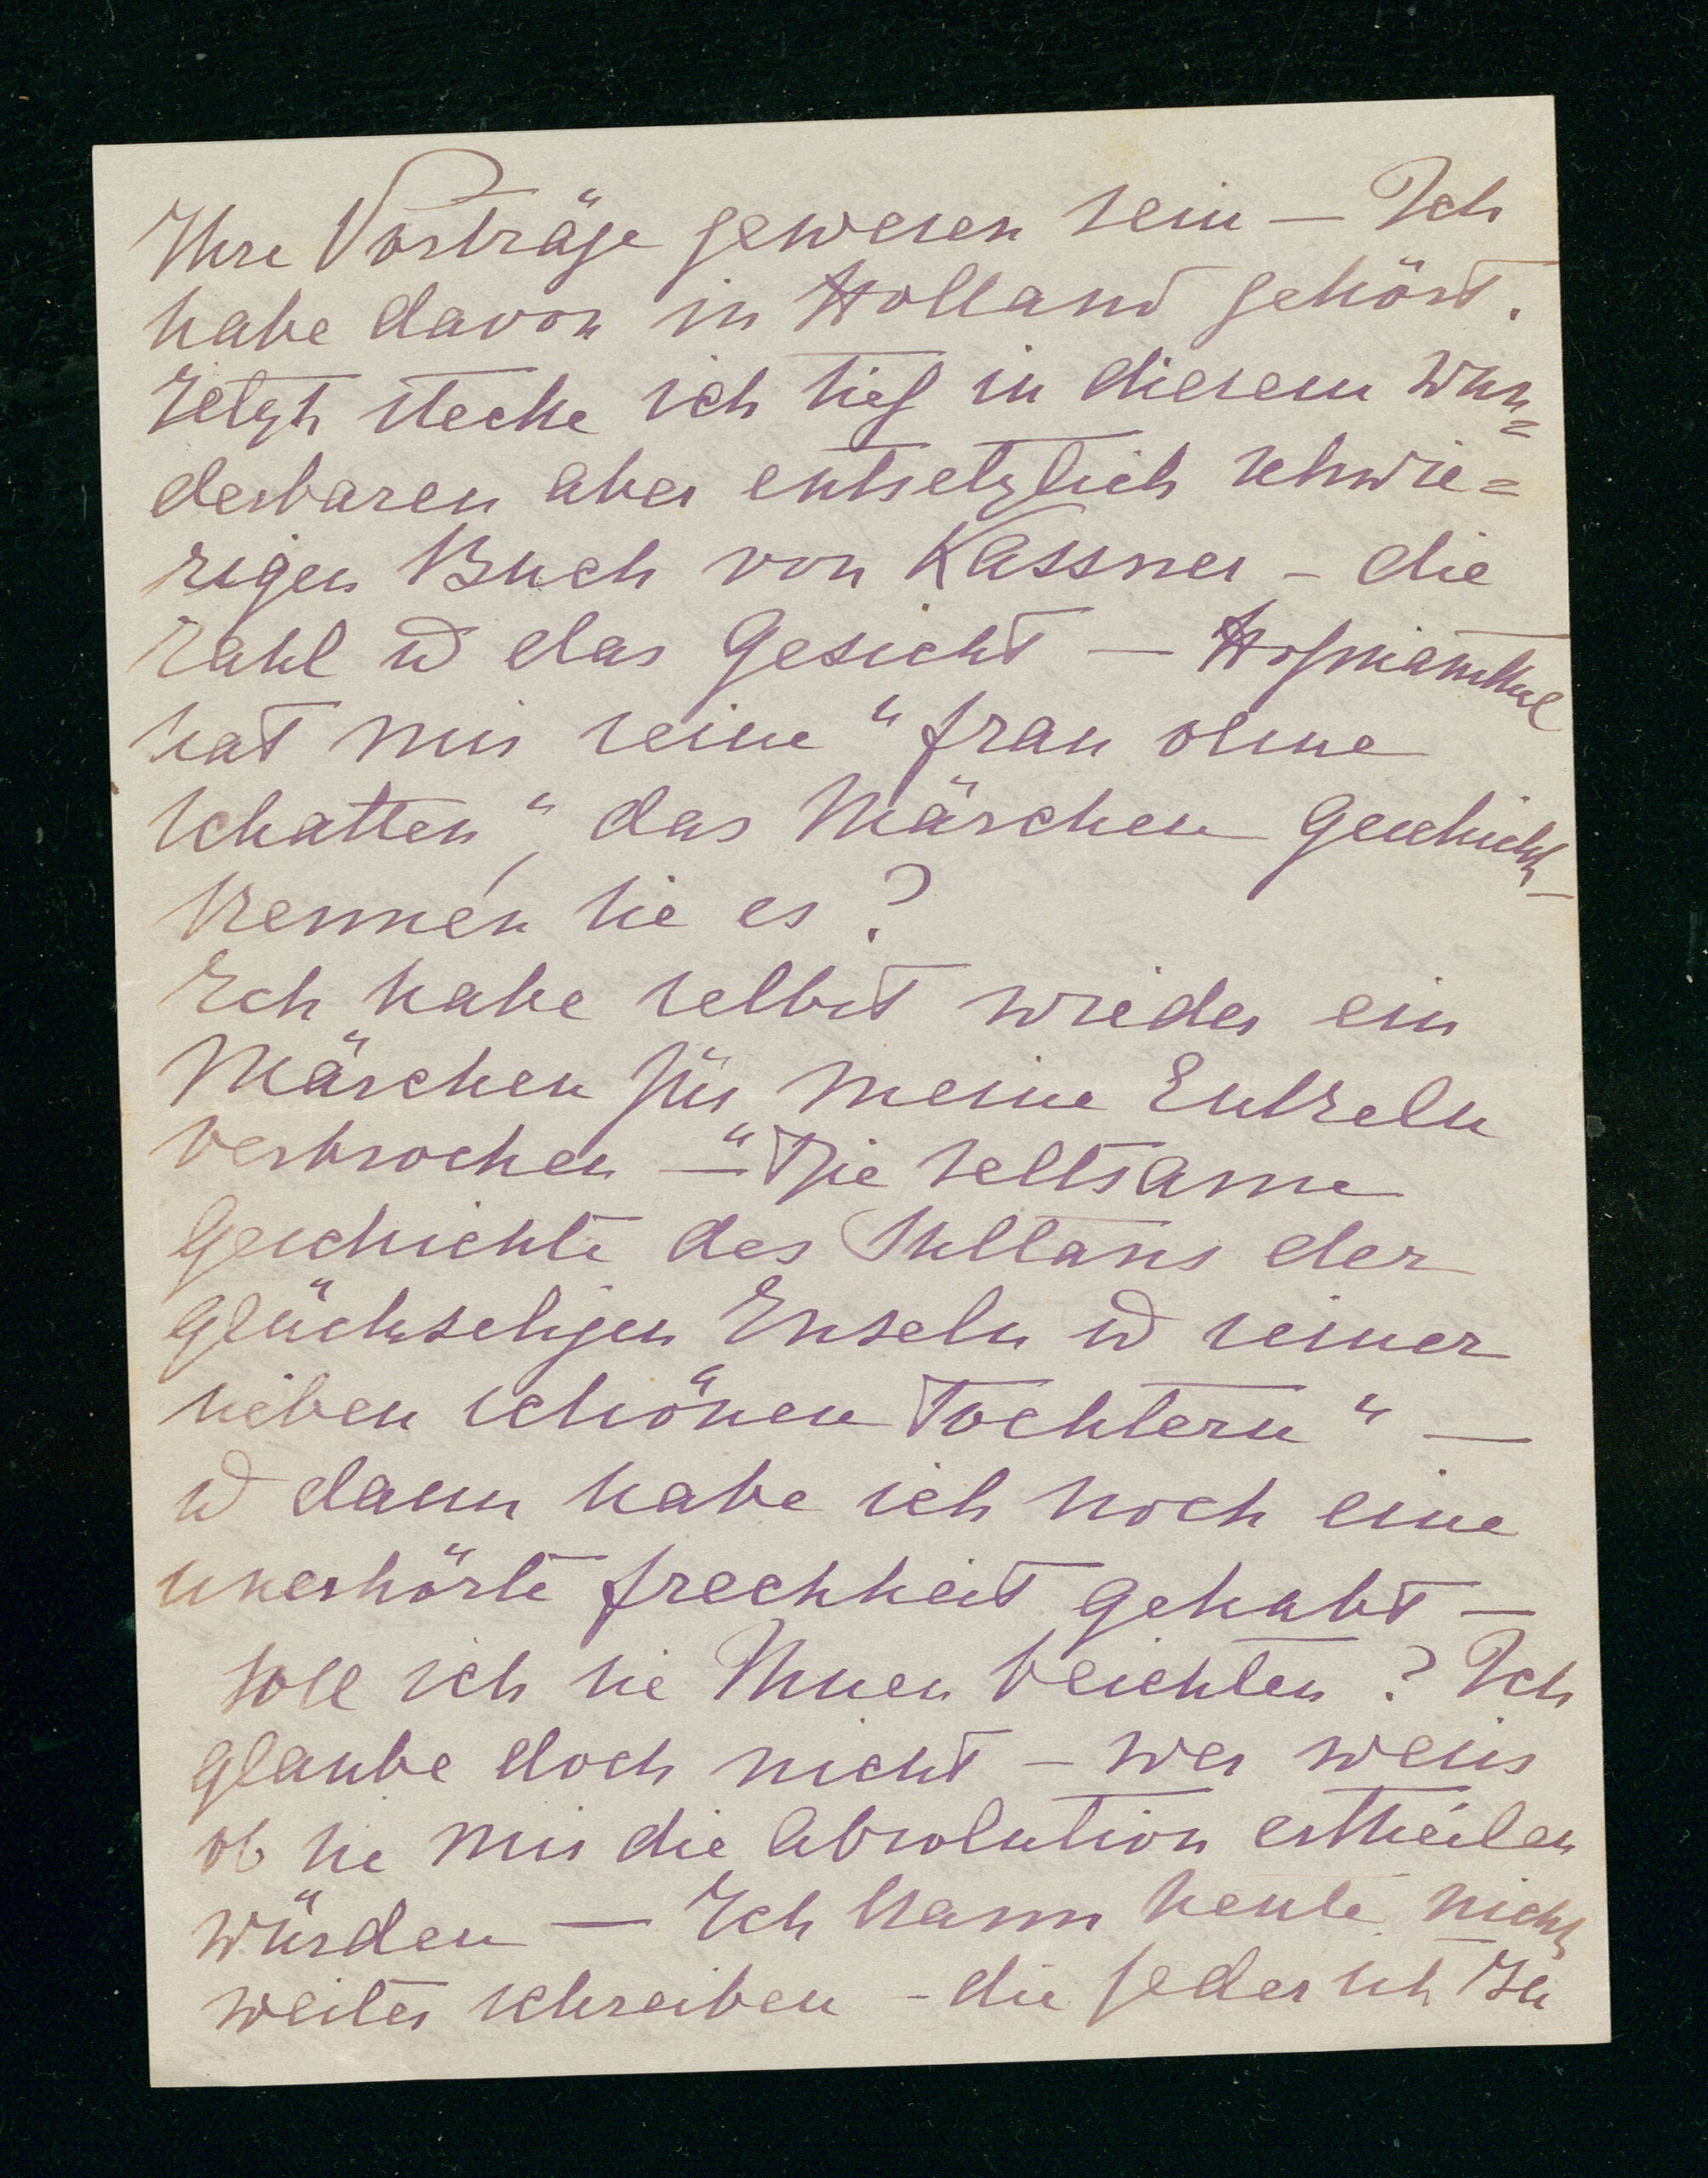 Ihre Vorträge gewesen sein — Ich
habe davon in Holland gehört.
Jetzt stecke ich tief in diesem wun=
derbaren aber entsetzlich schwie=
rigen Buch von Kassner – die
Zahl ud das Gesicht — Hofmannsthal
hat mir seine "Frau ohne
Schatten", das Märchen geschickt –
kennen Sie es?
Ich habe selbst wieder ein
Märchen für meine Enkeln
verbrochen — "Die seltsame
Geschichte des Sultans der
glückseligen Inseln ud seiner
sieben schönen Tochtern" —
ud dann habe ich noch eine
unerhörte Frechheit gehabt —
soll ich sie Ihnen beichten? Ich
glaube doch nicht – wer weiss
ob Sie mir die Absolution ertheilen
würden — Ich kann heute nicht
weiter schreiben – die Feder ist zu